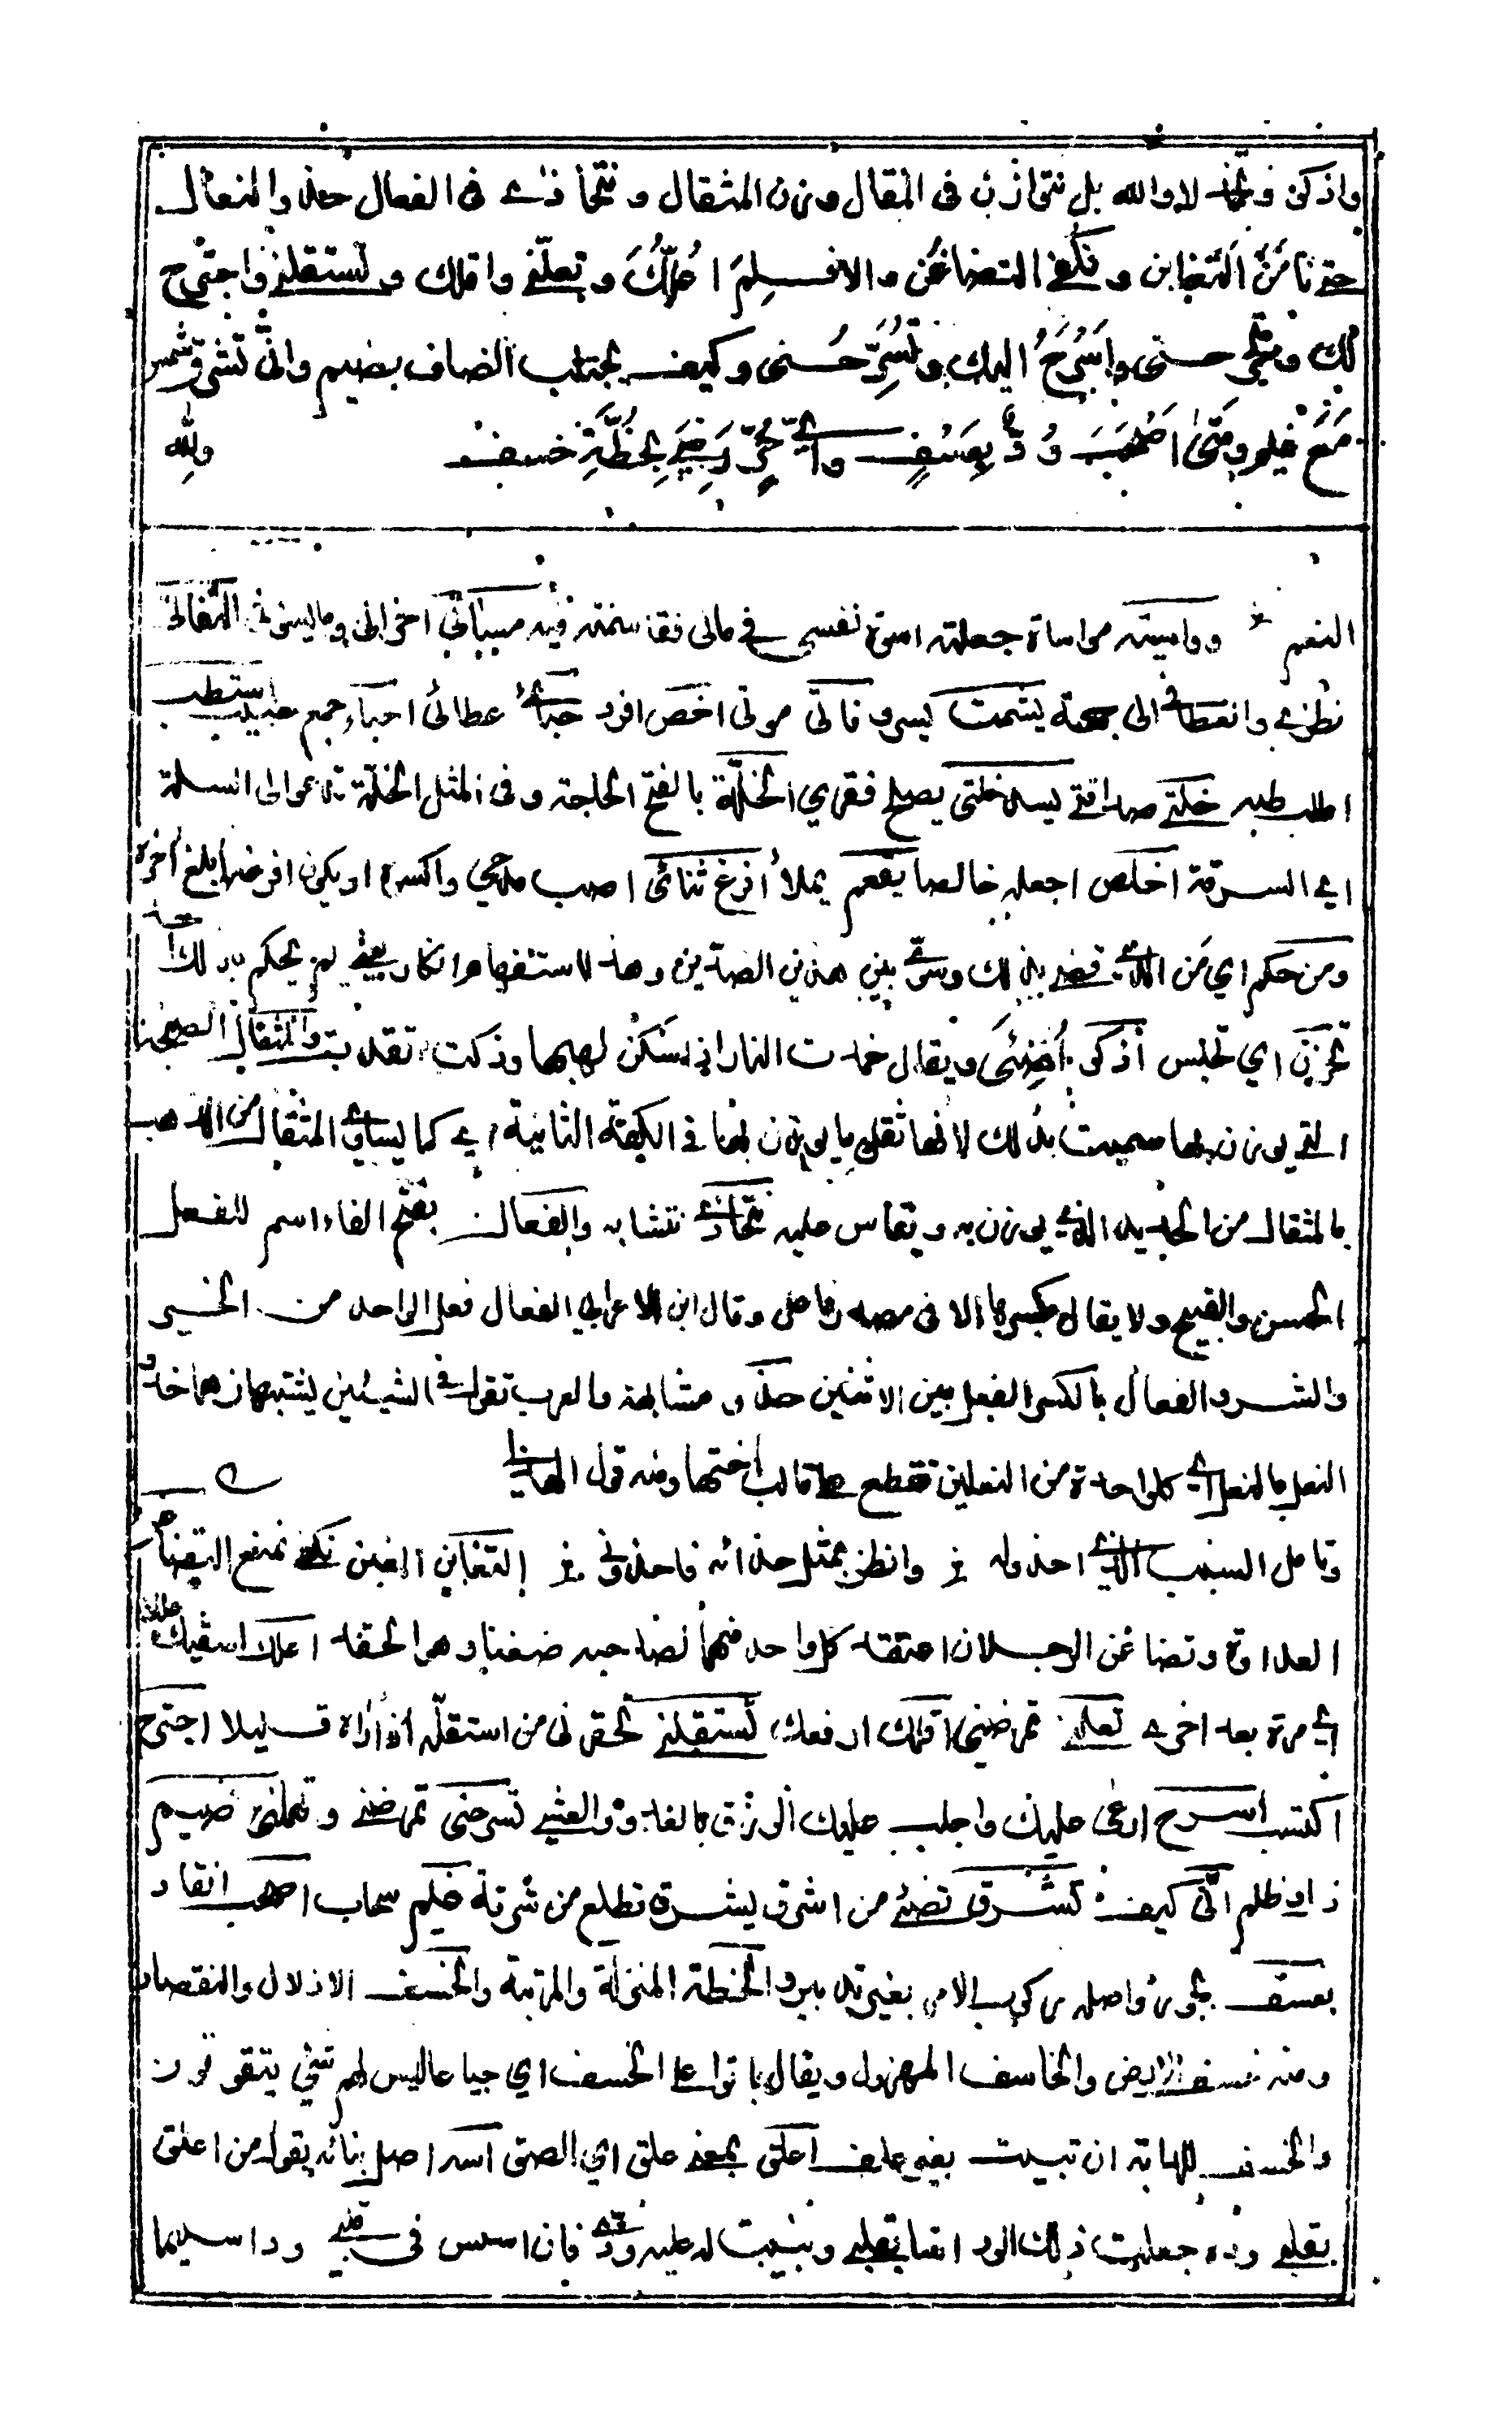 واذكى وتخمد لا والله بل نتوازن فى المقال وزن المثقال ونتحاذى فى الفعال حذو النعال
حتى نأمن التغابن ونكفى التضاغن والا فلم اعلك وتعلنى واقلك وتستقلنى واجترح
لك وتجرحنى واسرح اليك وتسرحنى وكيف يجتلب انصاف بضيم وانى تشرق شمس
مع غيم ومتى اصحب ود بعسف واى حر رضى بخطة خسف ولله
النعم وواسيته مواساة جعلته اسوة نفسى فى مالى فقاسمته فيه
نظرى وانعطافى الى جهة يشمت يسر وفاتى موتى اخص افرد حبائى عطائى احباء جمع حبيب استطب
اطلب طبه خلتى صداقتى يسد خلتى يصلح فقرى الخلة بالفتح الحاجة وفى المثل الخلة تدعو الى السلة
اى السرقة اخلص اجعله خالصا يفعم يملأ افرغ ثنائى اصب مدحى واكسوه او يكون افرغ ابلغ آخره
ومن حكم اى من الذى قضى بذلك وسوى بين هذين الضدين وهذا الاستفهام انكار يعنى لم يحكم بذلك احد
تخزن اى تحبس اذكى اضئى ويقال خمدت النار اذا سكن لهبها وذكت اتقدت والمثقال الصنجة
التى يوزن بها سميت بذلك لانها تقل ما يوزن بها فى الكفة الثانية اى كما يساوى المثقال من الذهب
بالمثقال من الحديد الذى يوزن به ويقاس عليه نتحاذى نتشابه والفعال بفتح الفاء اسم للفعل
الحسن والقبيح ولا يقال بكسرها الا فى مصدر فاعل وقال ابن الاعرابي الفعال فعل الواحد من الخير
والشر والفعال بالكسر الفعل بين الاثنين حذو مشابهة والعرب تقول فى الشيئين يشتبهان هما حذو
النعل بالنعل اى كل واحدة من النعلين تقطع على قالب اختها ومنه قول الهاذى
وتامل السبب الذى احذوله وانظر بمثل حذائه فاحذونى التغابن الغبن نكفى نمنع التضاغن
العداوة وتضاغن الرجلان اعتقد كل واحد منهما لصاحبه ضغنا وهو الحقد اعلك اسقيك عللا
اى مرة بعد اخرى تعلنى تمرضنى اقلك ارفعك تستقلنى تحقرنى من استقله اذا رآه قليلا اجترح
اكتسب اسرح ارعى عليك واجلب عليك الرزق بالغدو والعشى تسرحنى تمرضنى وتهملنى ضيم
ظلم انى كيف تشرق تضئ من اشرق يشرق تطلع من شرقة غيم سحاب اصحب انقاد
بعسف بجور واصله ركوب الامر بغير تدبير والخطة المنزلة والمرتبة والخسف الاذلال والنقصان
ومنه خسف الارض والخاسف المهزول ويقال باتوا على الخسف اى جياعا ليس لهم شئ يتقوتون
والخسف للدابة ان تبيت بغير علف اعلق بمعنى علق اى الصق اسه اصل بنائه يقول من اعلق
بقلبى وده جعلت ذلك الود بقلبى وبنيت له عليه ودا فان اسس فى قلبى ودا سليما